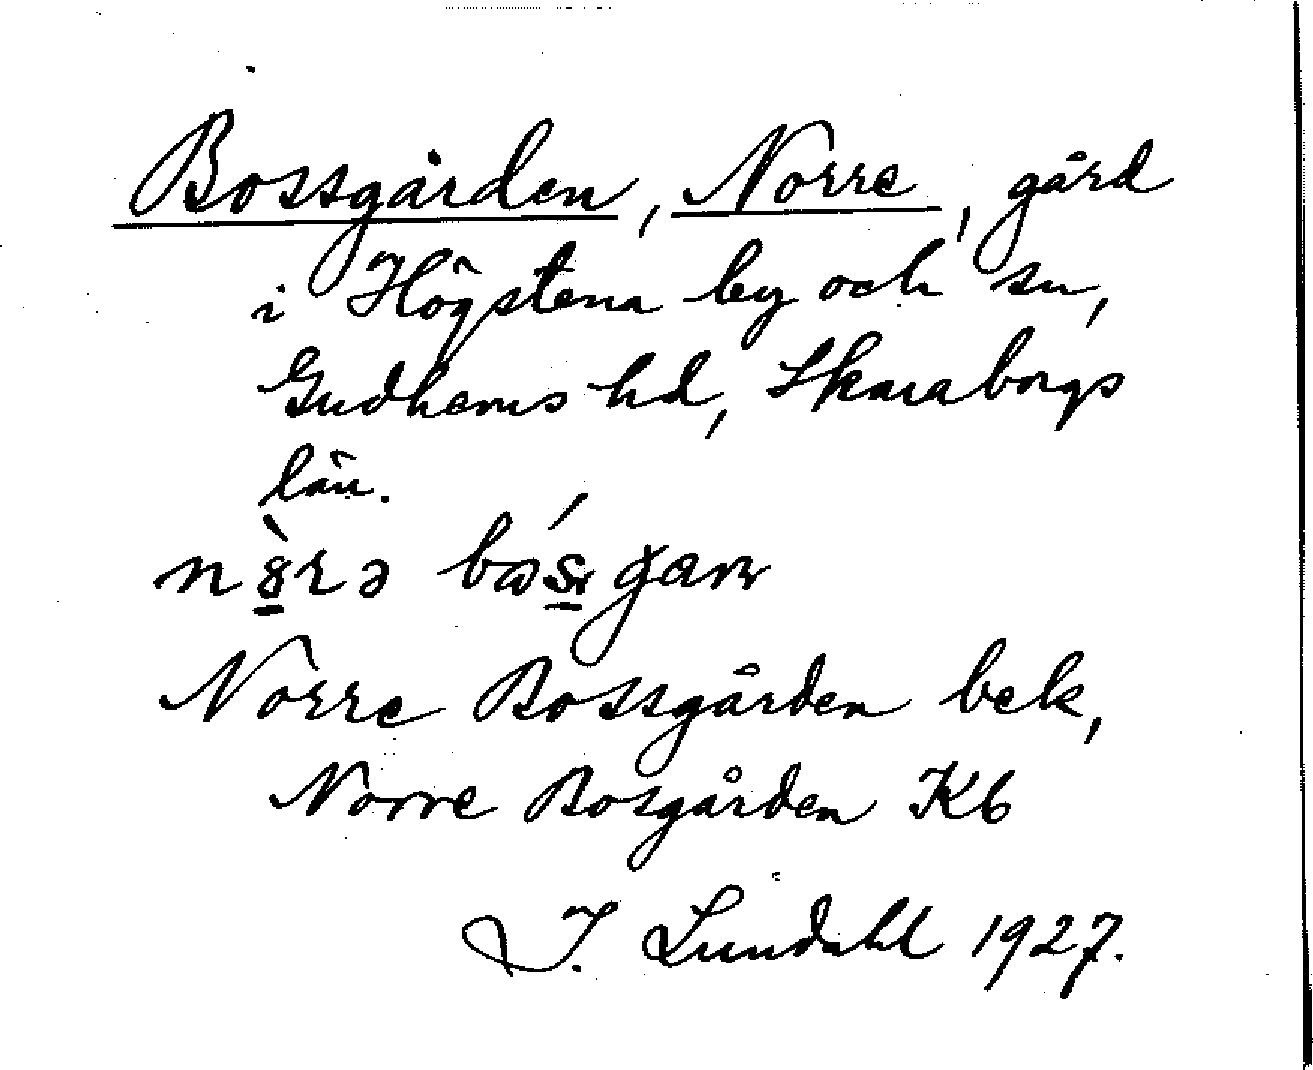 Bossgården, Norre, gård
i Högstena by och sn,
Gudhems hd, Skaraborgs
län.
Norre Bossgården bek,
Norre Bosgården Kb
I. Lundahl 1927.